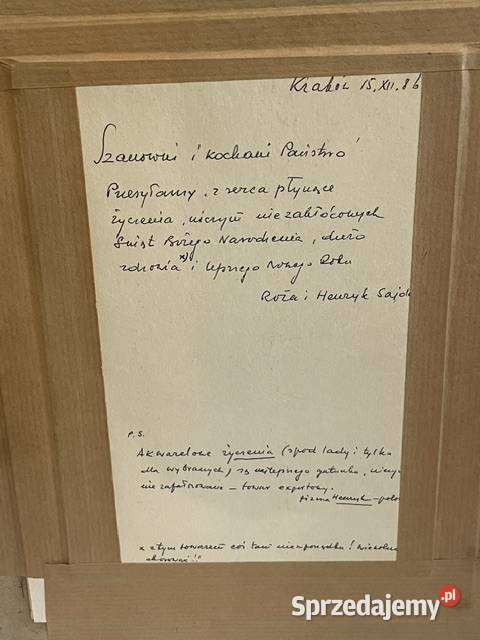 Kraków 15.XII.86
Szanowni i kochani Państwo!
Przesyłamy z serca płynące
życzenia, niczym niezakłóconych
Świąt Bożego Narodzenia, dużo
zdrowia x) i lepszego Nowego Roku
Róża i Henryk
P.S.
Akwarelowe życzenia (spod lady i tylko
dla wybranych) są najlepszego gatunku,
nie zafałszowane – towar exportowy.
firma Henryk –
x z tym towarem coś tam nie w porządku!
chorować!!
Sprzedajemy.pl